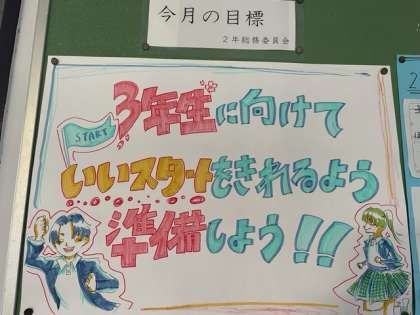 今月の目標
2年総務委員会
3年生に向けて
START
いいスタートをきれるよう
準備しよう!!
2